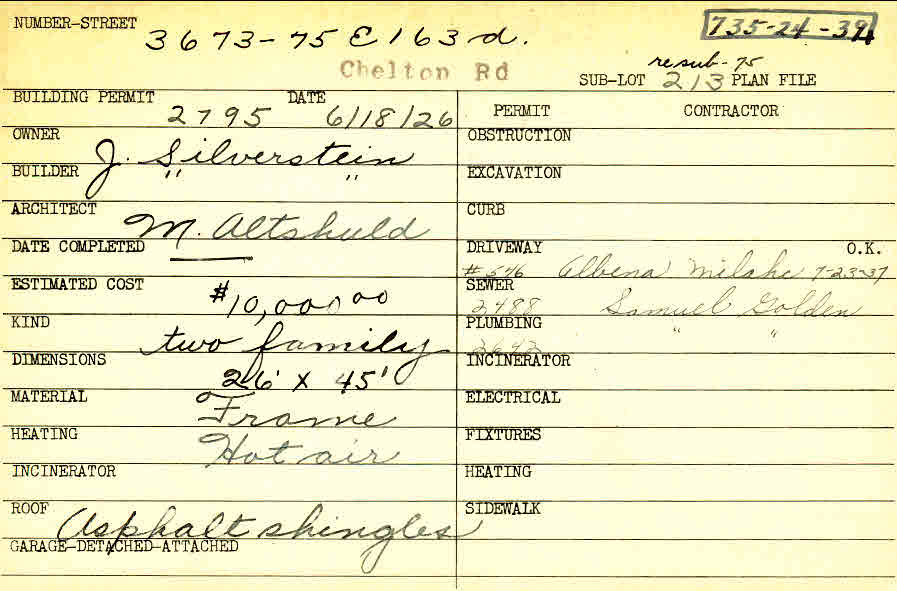 NUMBER-STREET 3673-75 E 163 d. 735-24-39
Chelton Rd
resub-75
SUB-LOT 213 PLAN FILE
BUILDING PERMIT 2795 DATE 6/18/26
PERMIT CONTRACTOR
OWNER J. Silverstein
OBSTRUCTION
BUILDER " "
EXCAVATION
ARCHITECT M. Altshuld
CURB
DATE COMPLETED —
DRIVEWAY O.K.
#546 Albena 7-23-37
ESTIMATED COST $10,000.00
SEWER
2488 Samuel Golden
KIND two family
PLUMBING
2642 " "
DIMENSIONS 26' X 45'
INCINERATOR
MATERIAL Frame
ELECTRICAL
HEATING Hot air
FIXTURES
INCINERATOR
HEATING
ROOF Asphalt shingles
SIDEWALK
GARAGE-DETACHED-ATTACHED